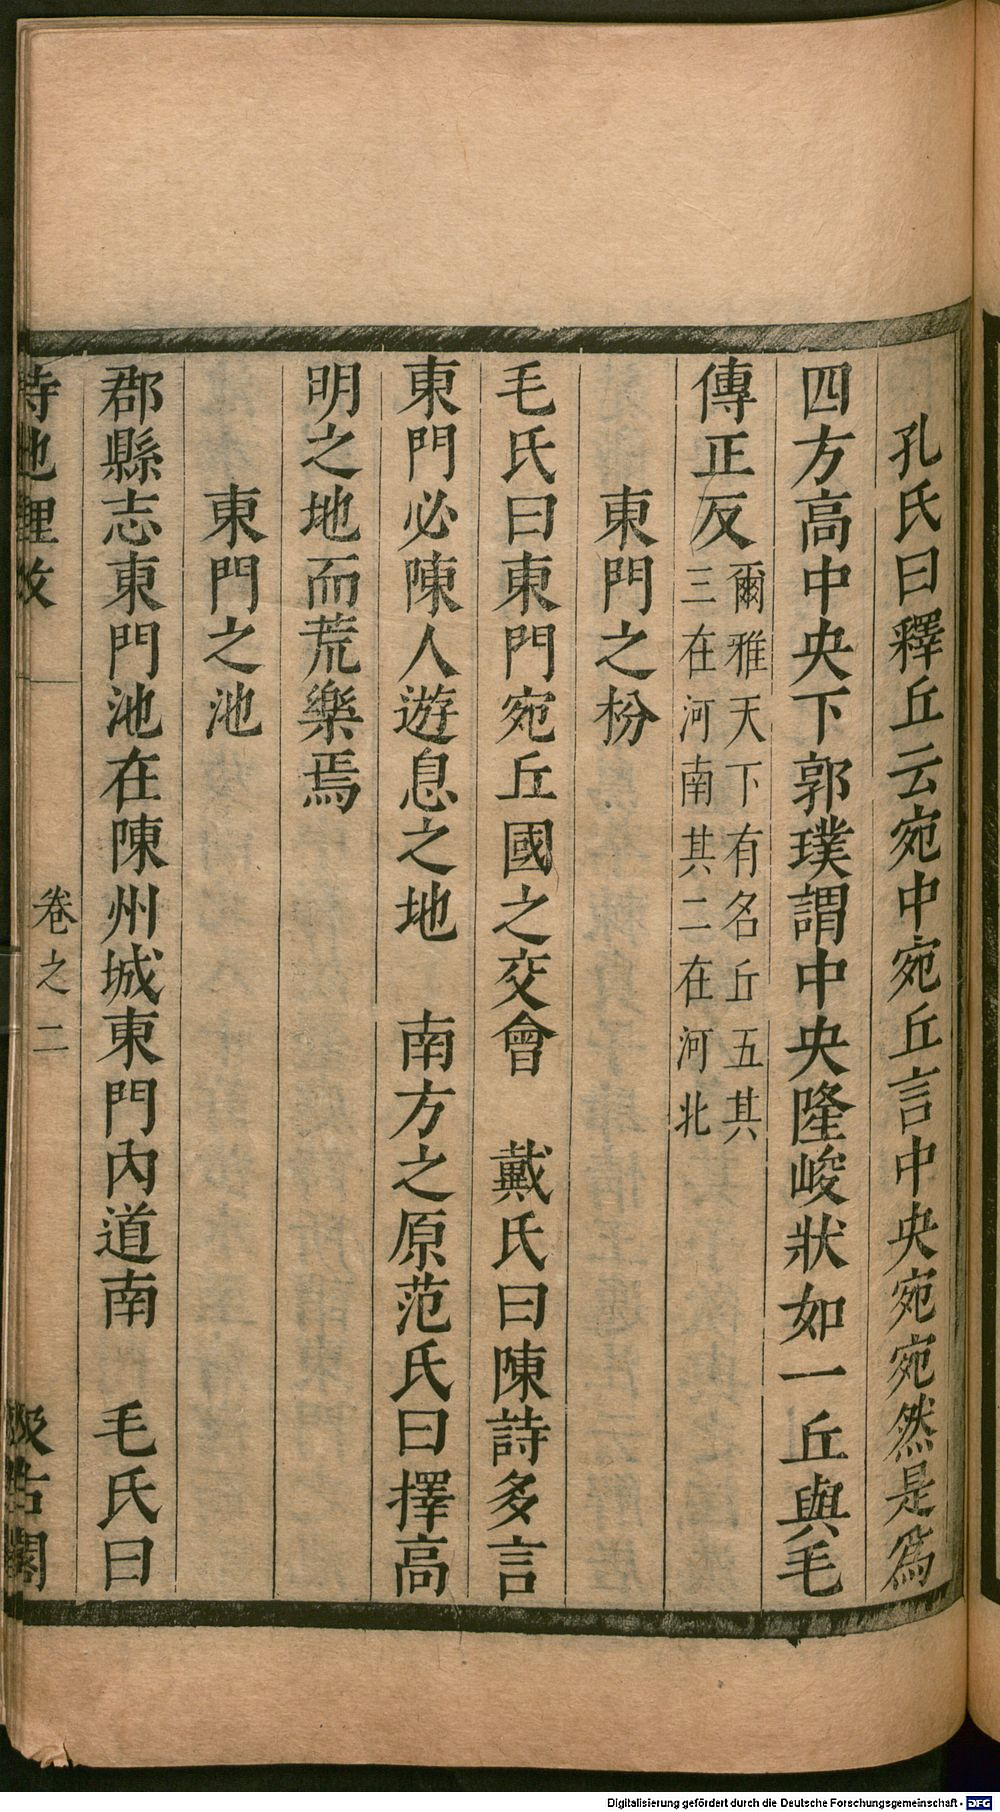 孔氏曰釋丘云宛中宛丘言中央宛宛然是爲
四方高中央下郭璞謂中央隆峻狀如一丘與毛
傳正反爾雅天下有名丘五其
三在河南其二在河北
東門之枌
毛氏曰東門宛丘國之交會　戴氏曰陳詩多言
東門必陳人遊息之地　南方之原范氏曰擇高
明之地而荒樂焉
東門之池
郡縣志東門池在陳州城東門內道南　毛氏曰
詩地理攷　卷之二　汲古閣
Digitalisierung gefördert durch die Deutsche Forschungsgemeinschaft - DFG